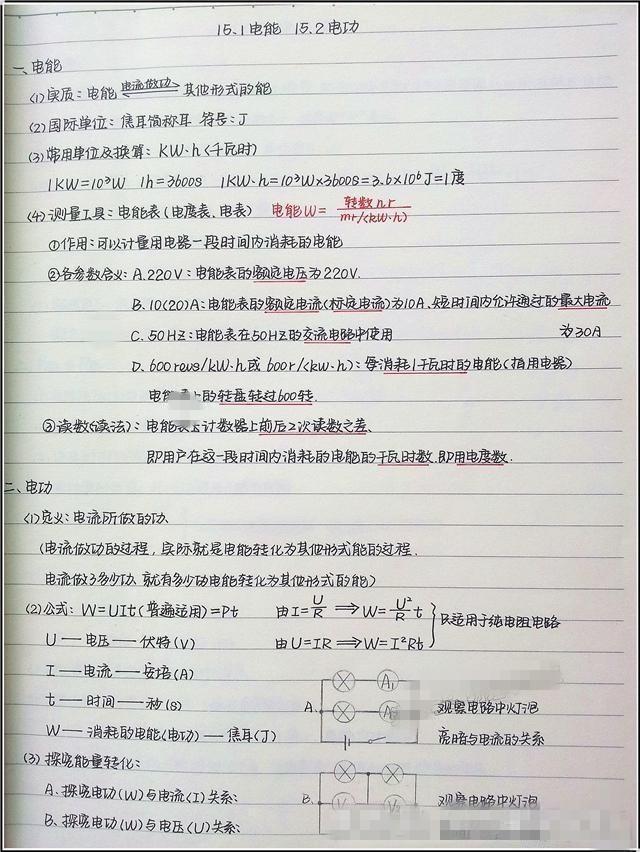 15.1电能 15.2电功
一、电能
(1)实质:电能 电流做功 其他形式的能
(2)国际单位:焦耳简称耳 符号:J
(3)常用单位及换算:KW·h(千瓦时)
1KW=10³W 1h=3600s 1KW·h=10³W×3600s=3.6×10⁶J=1度
(4)测量工具:电能表(电度表、电表) 电能W= 转数n r / m r/(kW·h)
①作用:可以计量用电器一段时间内消耗的电能
②各参数含义:A.220V:电能表的额定电压为220V.
B.10(20)A:电能表的额定电流(标定电流)为10A、短时间内允许通过的最大电流
为30A
C.50HZ:电能表在50HZ的交流电路中使用
D.600revs/kW·h或600r/(kW·h):每消耗1千瓦时的电能(指用电器)
电能 上的转盘转过600转.
③读数(读法):电能表 计数器上前后2次读数之差、
即用户在这一段时间内消耗的电能的千瓦时数.即用电度数.
二、电功
(1)定义:电流所做的功、
(电流做功的过程,实际就是电能转化为其他形式能的过程.
电流做了多少功、就有多少电能转化为其他形式的能)
(2)公式:W=UIt(普遍适用)=Pt 由I=U/R ⟹W=U²/R t
U—电压—伏特(V) 由U=IR⟹W=I²Rt
只适用于纯电阻电路
I—电流—安培(A)
t—时间—秒(s)
W—消耗的电能(电功)—焦耳(J)
A₁
A. A₂ 观察电路中灯泡
亮暗与电流的关系
(3)探究能量转化:
A.探究电功(W)与电流(I)关系:
B.探究电功(W)与电压(U)关系:
B. V₁ V₂ 观察电路中灯泡